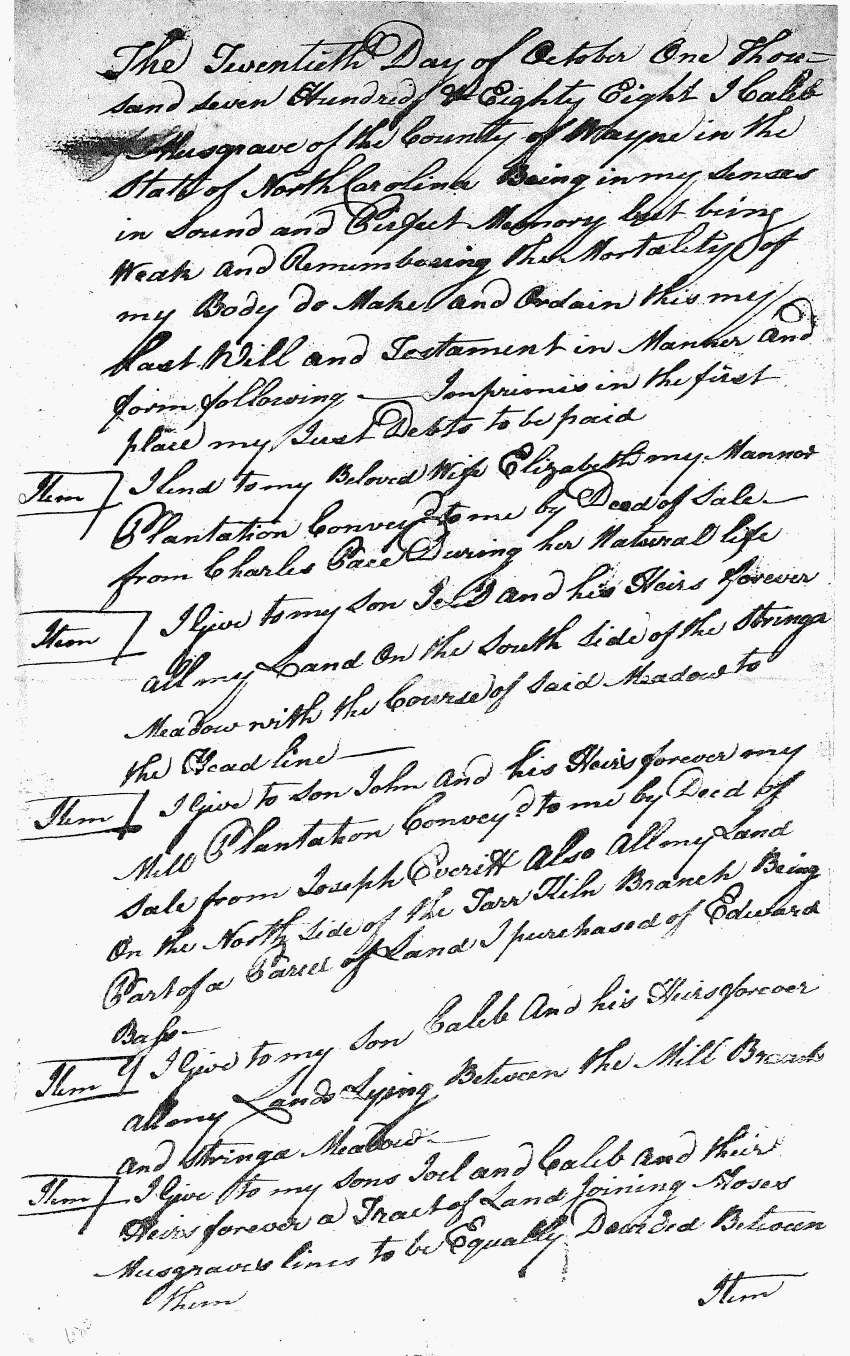 The Twentieth Day of October One Thou=
sand seven Hundred & Eighty Eight I Caleb
Musgrave of the County of Wayne in the
State of North Carolina Being in my senses
in Sound and Perfect Memory but being
Weak and Remembering the Mortality of
my Body do Make and Ordain this my
Last Will and Testament in Manner and
form following — Imprimis in the first
place my Just Debts to be paid
Item I lend to my Beloved Wife Elizabeth my Mannor
Plantation Convey'd to me by Deed of Sale —
from Charles Pace During her Natural life
Item I Give to my Son Joel and his Heirs forever
all my Land On the South Side of the Stringa
Meadow with the Course of Said Meadow to
the Head line —
Item I Give to son John and his Heirs forever my
Mill Plantation Convey'd to me by Deed of
Sale from Joseph Everitt Also All my Land
On the North Side of the Tarr Kiln Branch Being
Part of a Parcel of Land I purchased of Edward
Bass —
Item I Give to my Son Caleb And his Heirs forever
all my Lands Lying Between the Mill Branch
and Stringa Meadow —
Item I Give to my sons Joel and Caleb and their
Heirs forever a Tract of Land Joining Moses
Musgraves lines to be Equally Between
them
Item